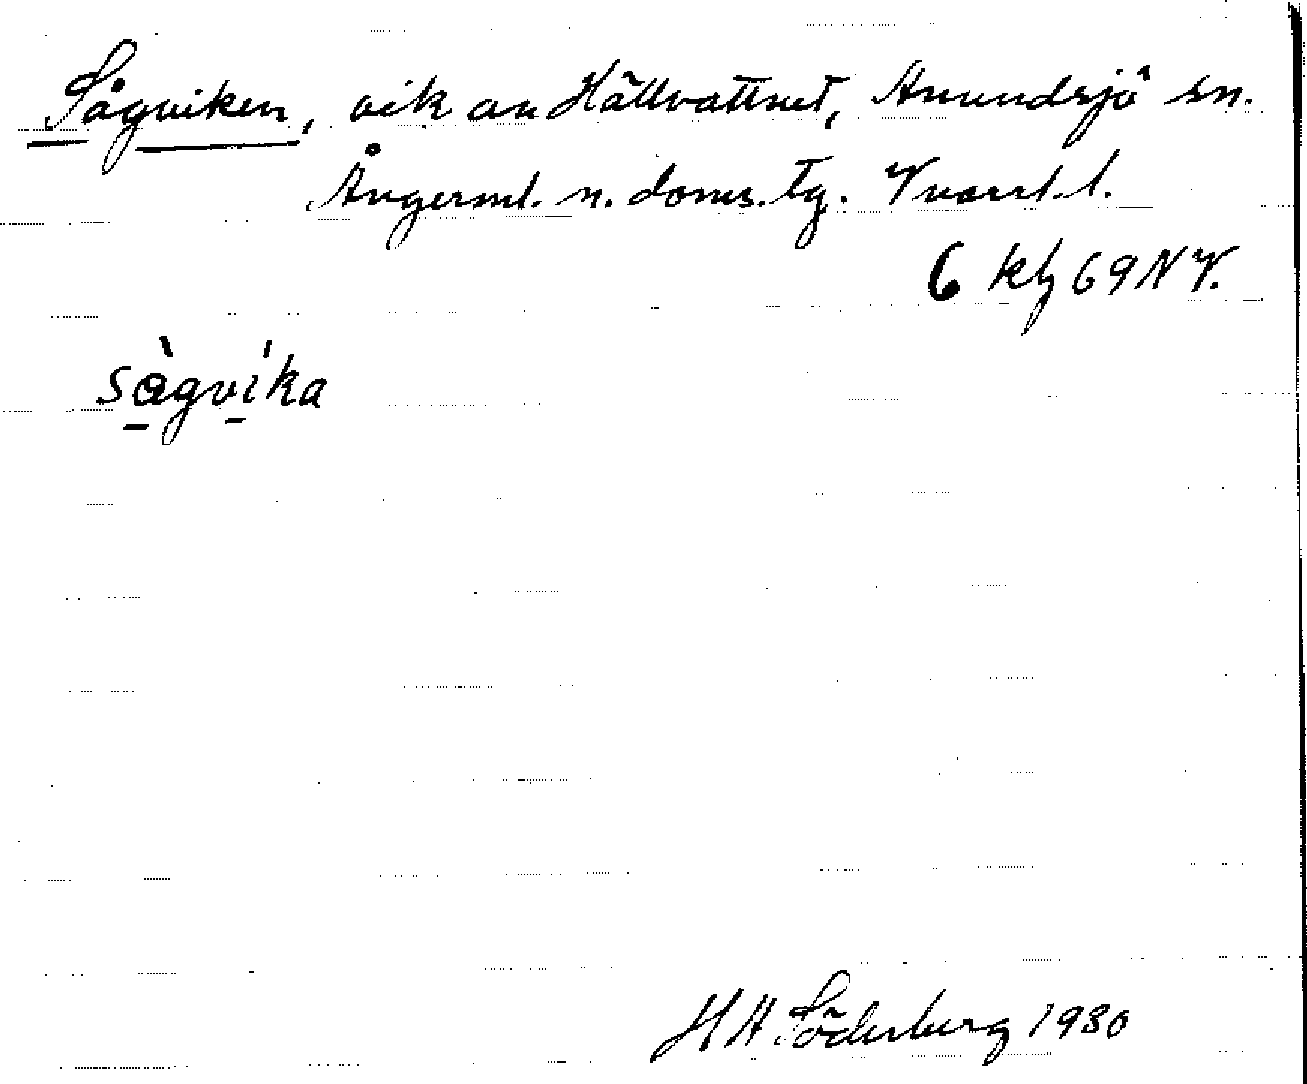 Sågviken, vik av Hällvattnet, Anundsjö sn.
Ångerml. n. doms. tg. Vnorrl. l.
6 kbl 69 NV.
sågvika
H A Söderberg 1930